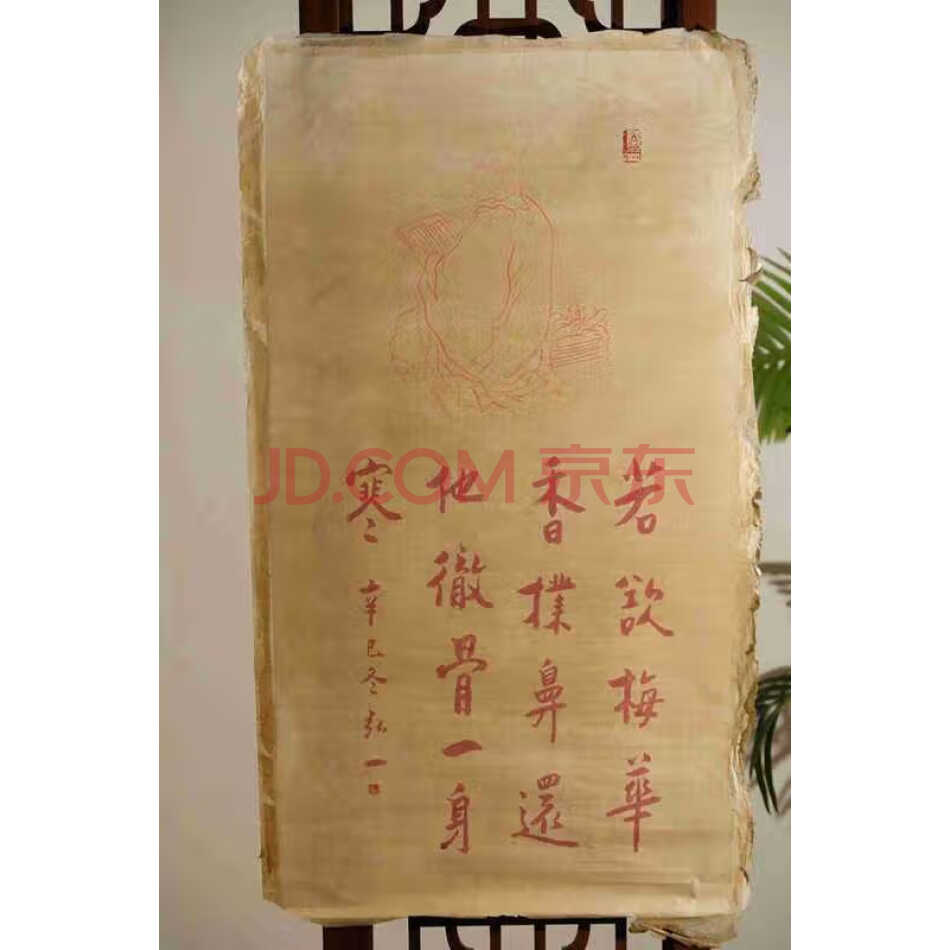 JD.COM 京东
若欲梅華
香撲鼻還
他徹骨一身
寒
辛巳冬弘一